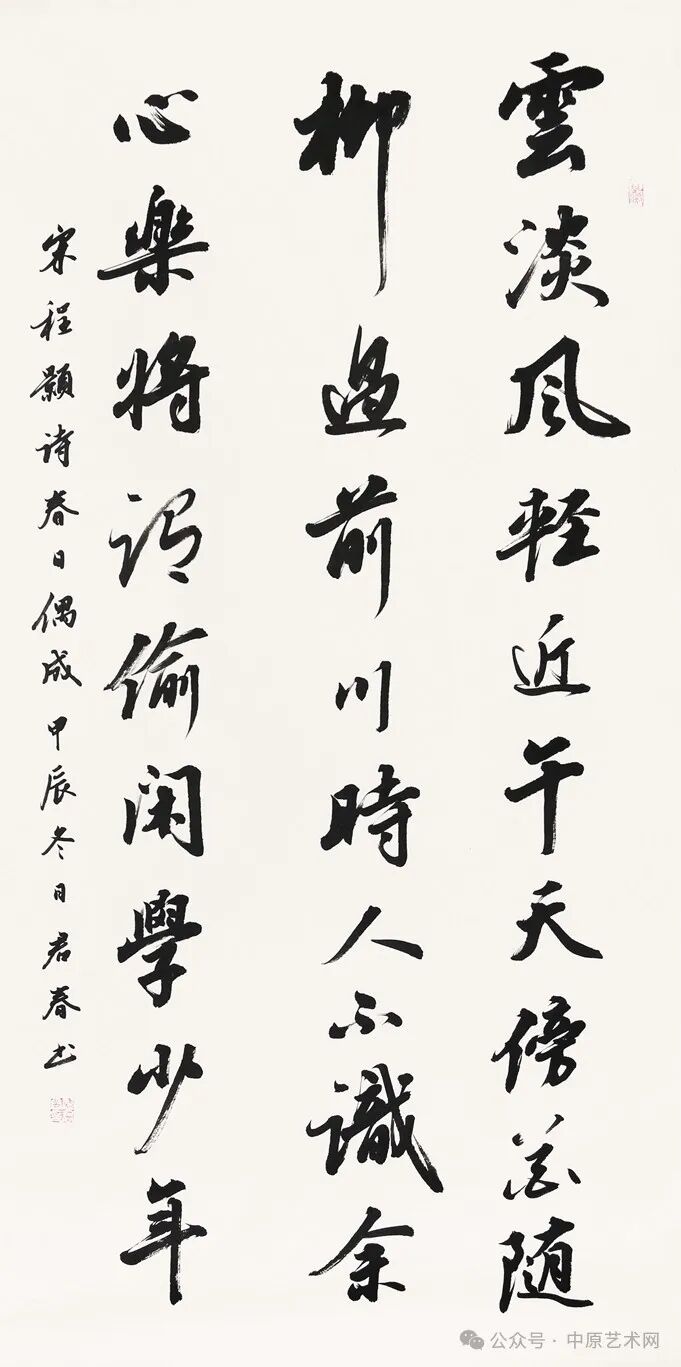 雲淡风軽近午天傍花随
柳過前川時人不識余
心樂将謂偷闲學少年
宋程颢诗春日偶成甲辰冬日君春书
公众号·中原艺术网